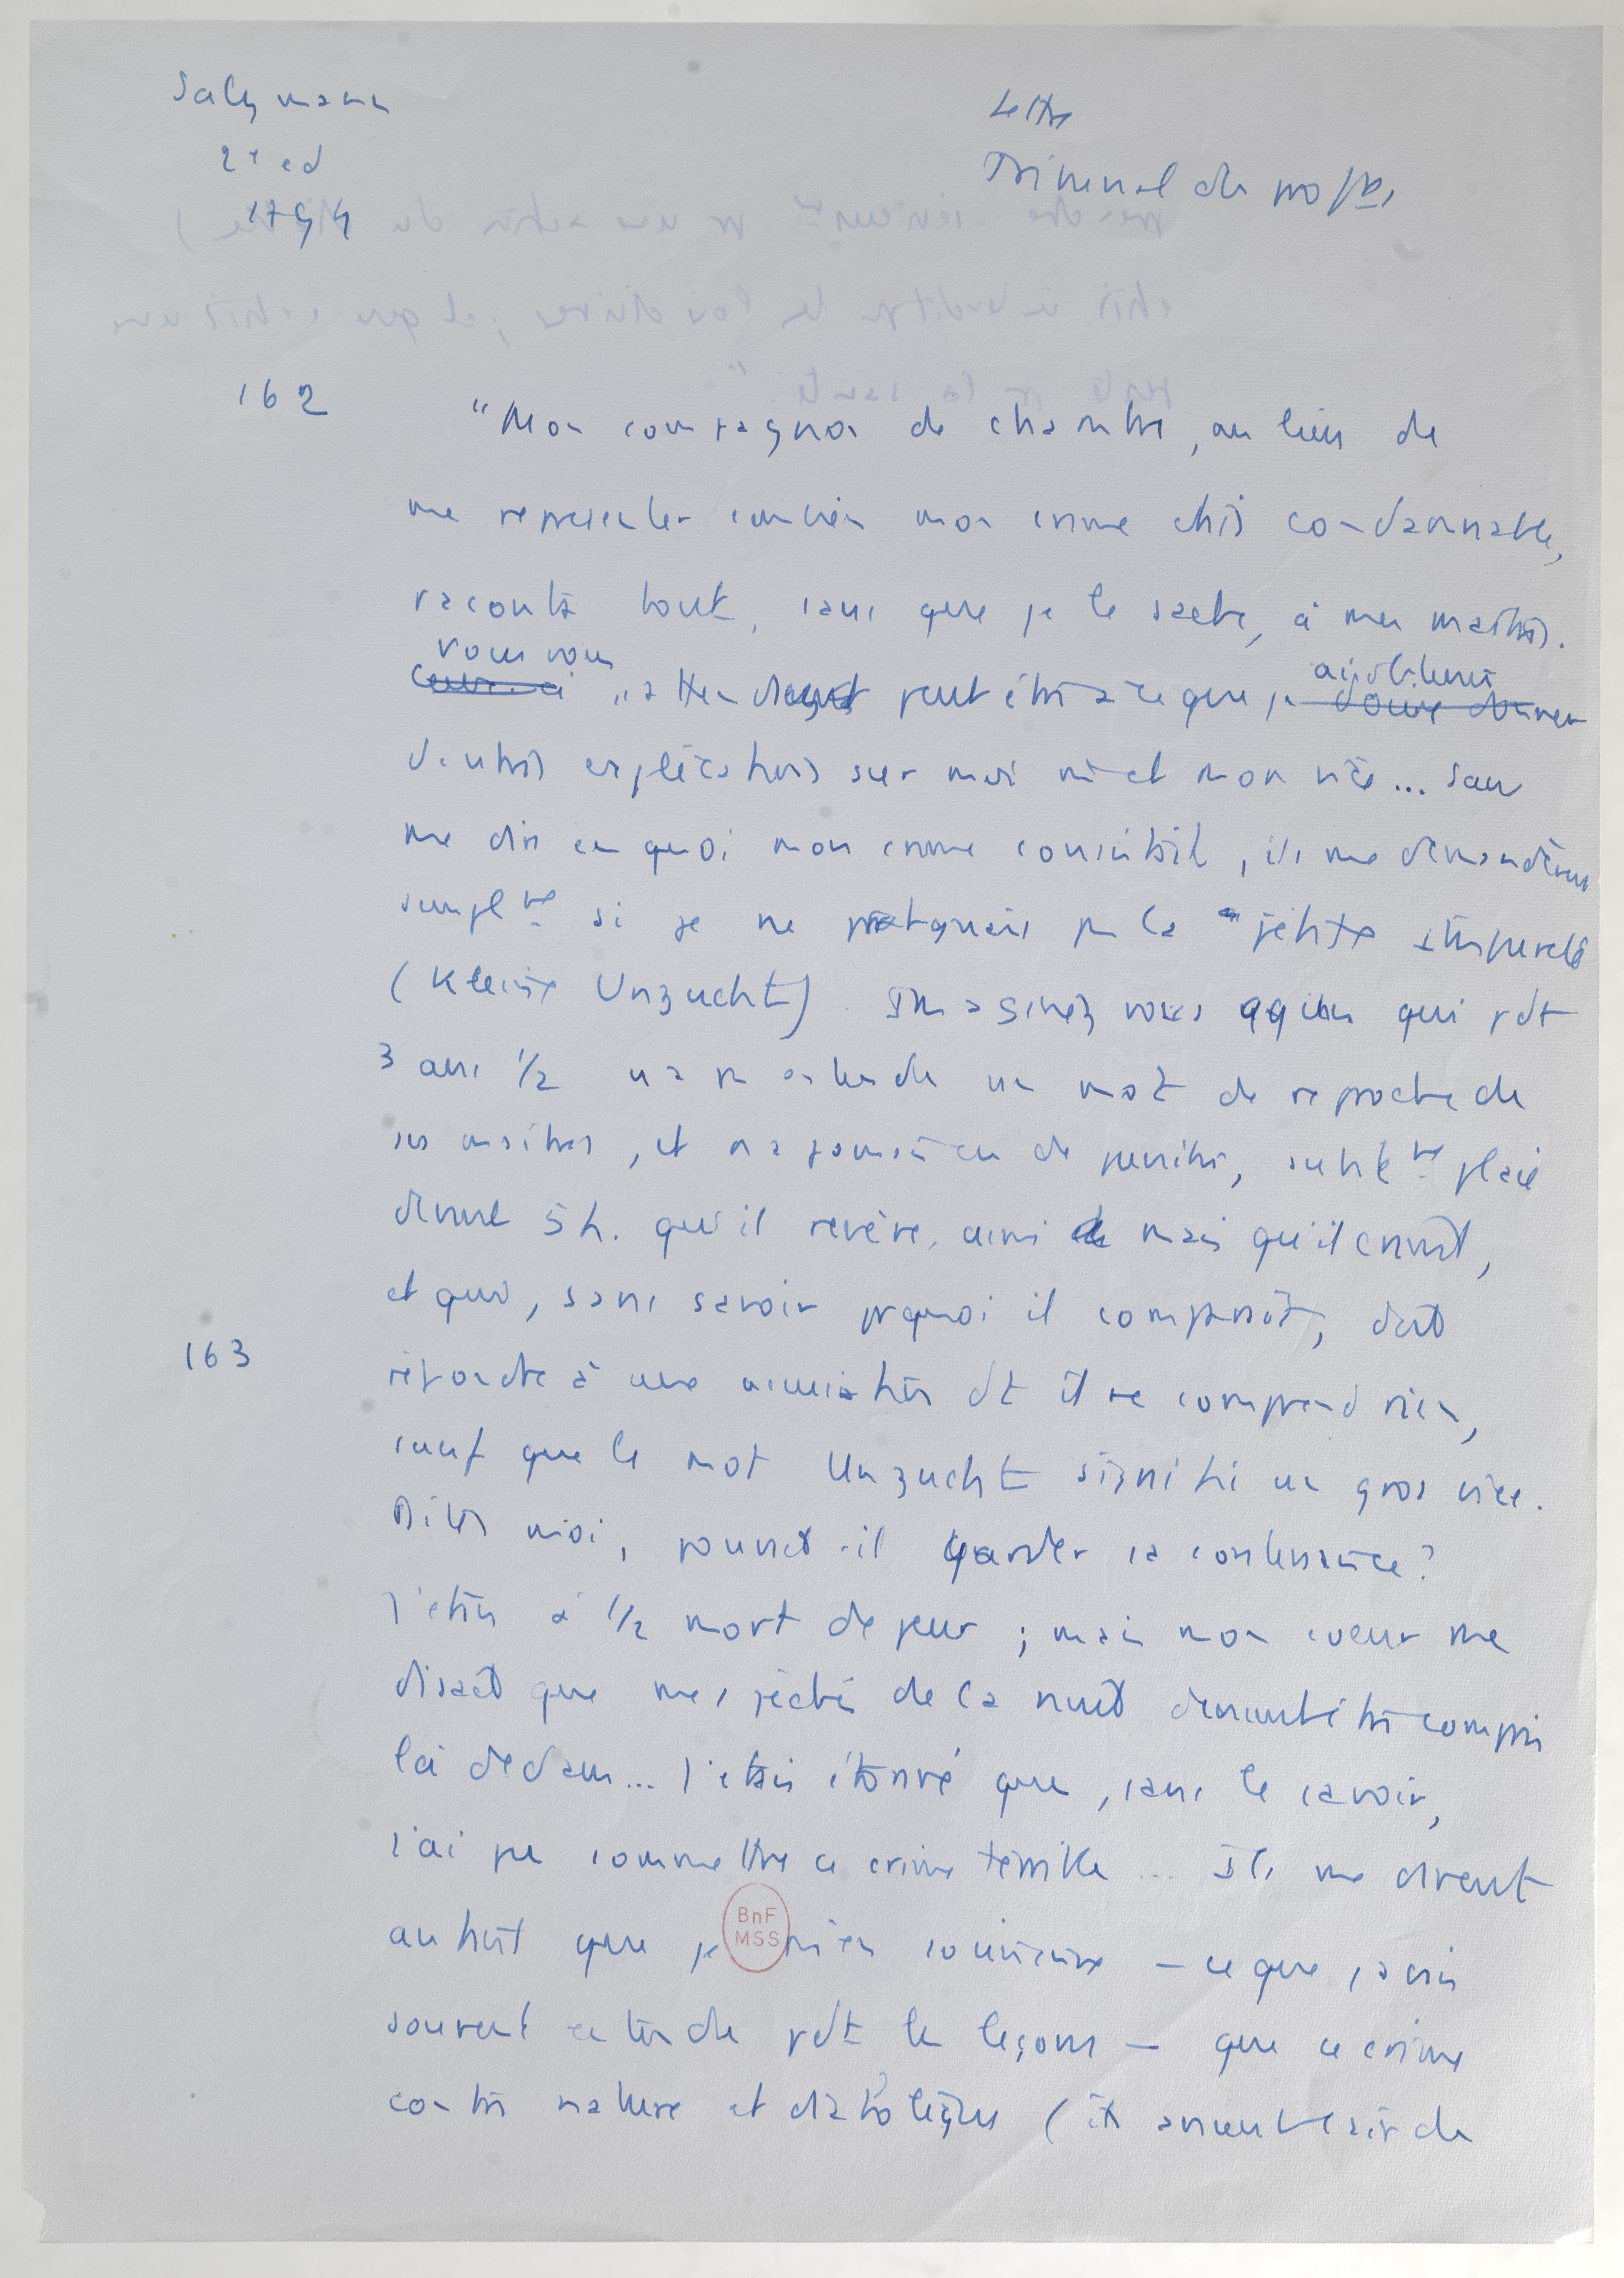 Salzmann
2e ed
1794
Lettre
Tribunal de profs
162
"Mon compagnon de chambre, au lieu de
me representer combien mon crime était condamnable,
raconta tout, sans que je le sache, à mes maîtres.
vous vous
attendent peut être à ce que je
d'autres explications sur moi et mon vice... Sans
me dire en quoi mon crime consistait, ils me demandèrent
simplmt si je ne pratiquais pas la petite impureté
(Kleine Unzucht). Imaginez vous qqun qui pdt
3 ans 1/2 n'a pas entendu un mot de reproche de
ses maîtres, et n'a jamais eu de punition, subitmt placé
devant 5 h. qu'il revère, mais qu'il craint,
et qui, sans savoir pquoi il comparaît, doit
répondre à une accusation dt il ne comprend rien,
163
sauf que le mot Unzucht signifie un gros vice.
Dites moi, pourrait-il garder sa contenance?
J'étais à 1/2 mort de peur ; mais mon coeur me
disait que mes péchés de la nuit devaient être compris
là dedans... J'étais étonné que, sans le savoir,
j'ai pu commettre ce crime terrible... Ils me dirent
aussitôt que je — ce que j'avais
souvent entendu pdt les leçons — que ce crime
contre nature et diabolique ( de
BnF
MSS